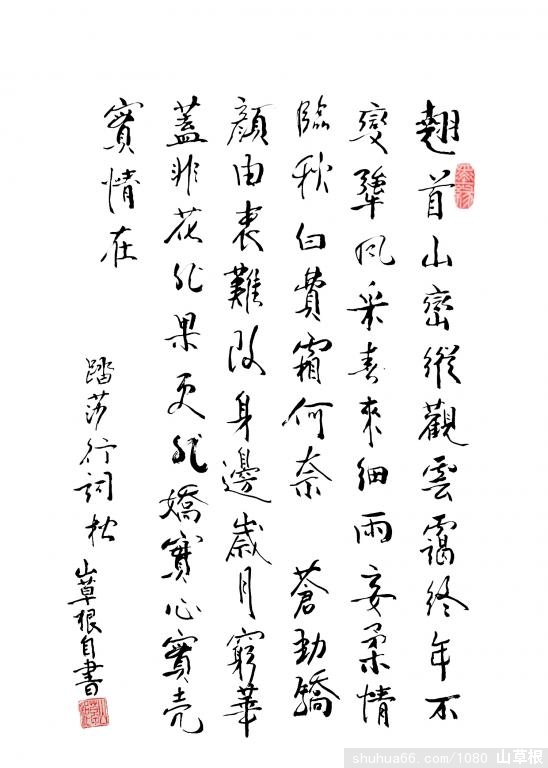 翹首山巒縱觀雲靄終年不
變犟風采春來細雨妄柔情
臨秋白費霜何奈 蒼勁矯
顏由衷難改身邊歲月窮華
蓋非花非果更非嬌實心實壳
實情在
踏莎行詞松
山草根自書
shuhua66.com/1080 山草根